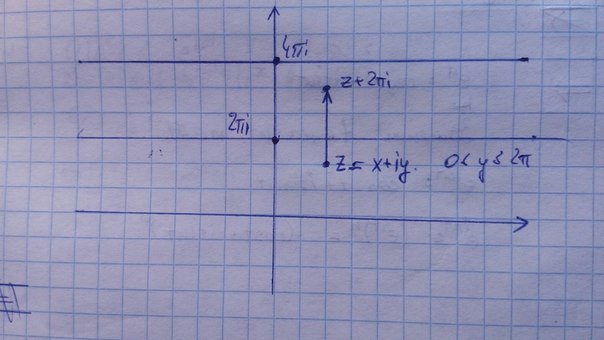 4πi
z+2πi
2πi
z = x+iy. 0 ≤ y ≤ 2π